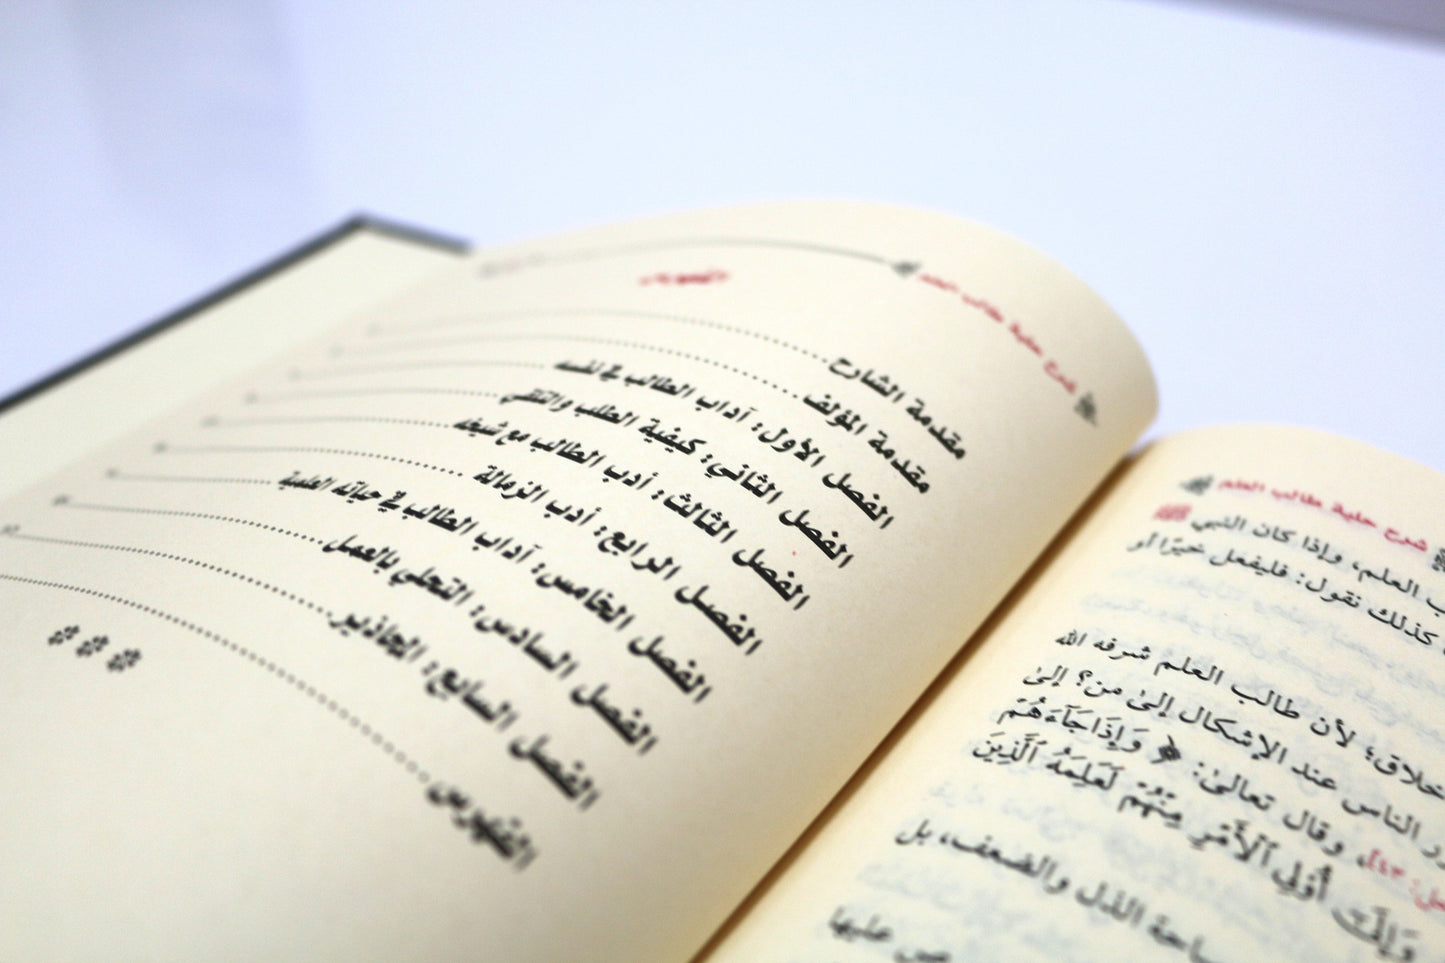 شرح حلية طالب العلم
ب العلم، وإذا كان النبي ﷺ
كذلك نقول: فليفعل خيرًا أو
خلاق؛ لأن طالب العلم شرفه الله
الناس عند الإشكال إلىٰ من؟ إلىٰ
وقال تعالىٰ: ﴿ وَإِذَا جَآءَهُمْ
وَإِلَىٰٓ أُو۟لِى ٱلْأَمْرِ مِنْهُمْ لَعَلِمَهُ ٱلَّذِينَ
ساحة الذل والضعف، بل
عليها
شرح حلية طالب العلم
الفهرس
مقدمة الشارح
مقدمة المؤلف
الفصل الأول: آداب الطالب في نفسه
الفصل الثاني: كيفية الطلب والتلقي
الفصل الثالث: أدب الطالب مع شيخه
الفصل الرابع: أدب الزمالة
الفصل الخامس: آداب الطالب في حياته العلمية
الفصل السادس: التحلي بالعمل
الفصل السابع: المحاذير
الفهرس